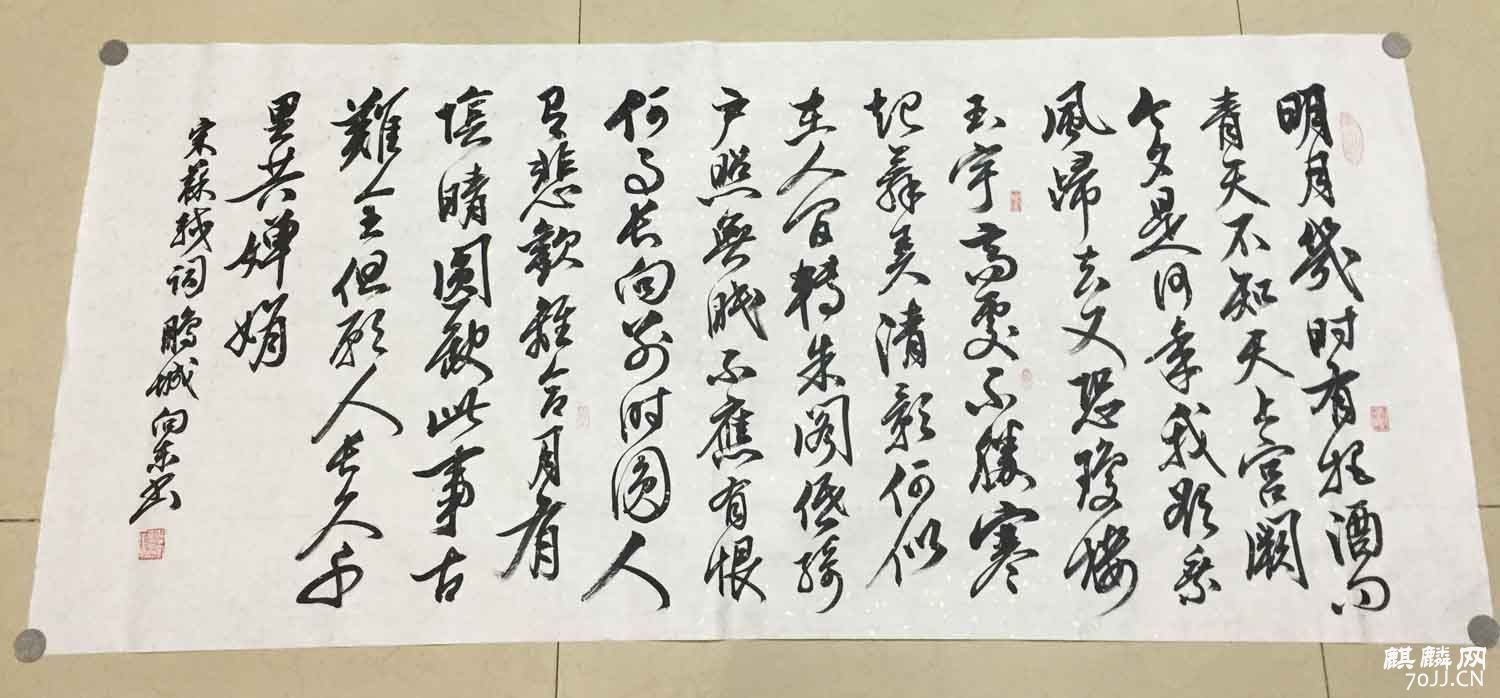 明月幾时有把酒问
青天不知天上宫阙
今夕是何年我欲乘
風歸去又恐瓊楼
玉宇高處不勝寒
起舞弄清影何似
在人间轉朱阁低绮
户照無眠不應有恨
何事长向别时圆人
有悲歡離合月有
陰晴圆缺此事古
難全但願人长久千
里共婵娟
宋苏轼词鹏城向东书
麒麟网
70JJ.CN